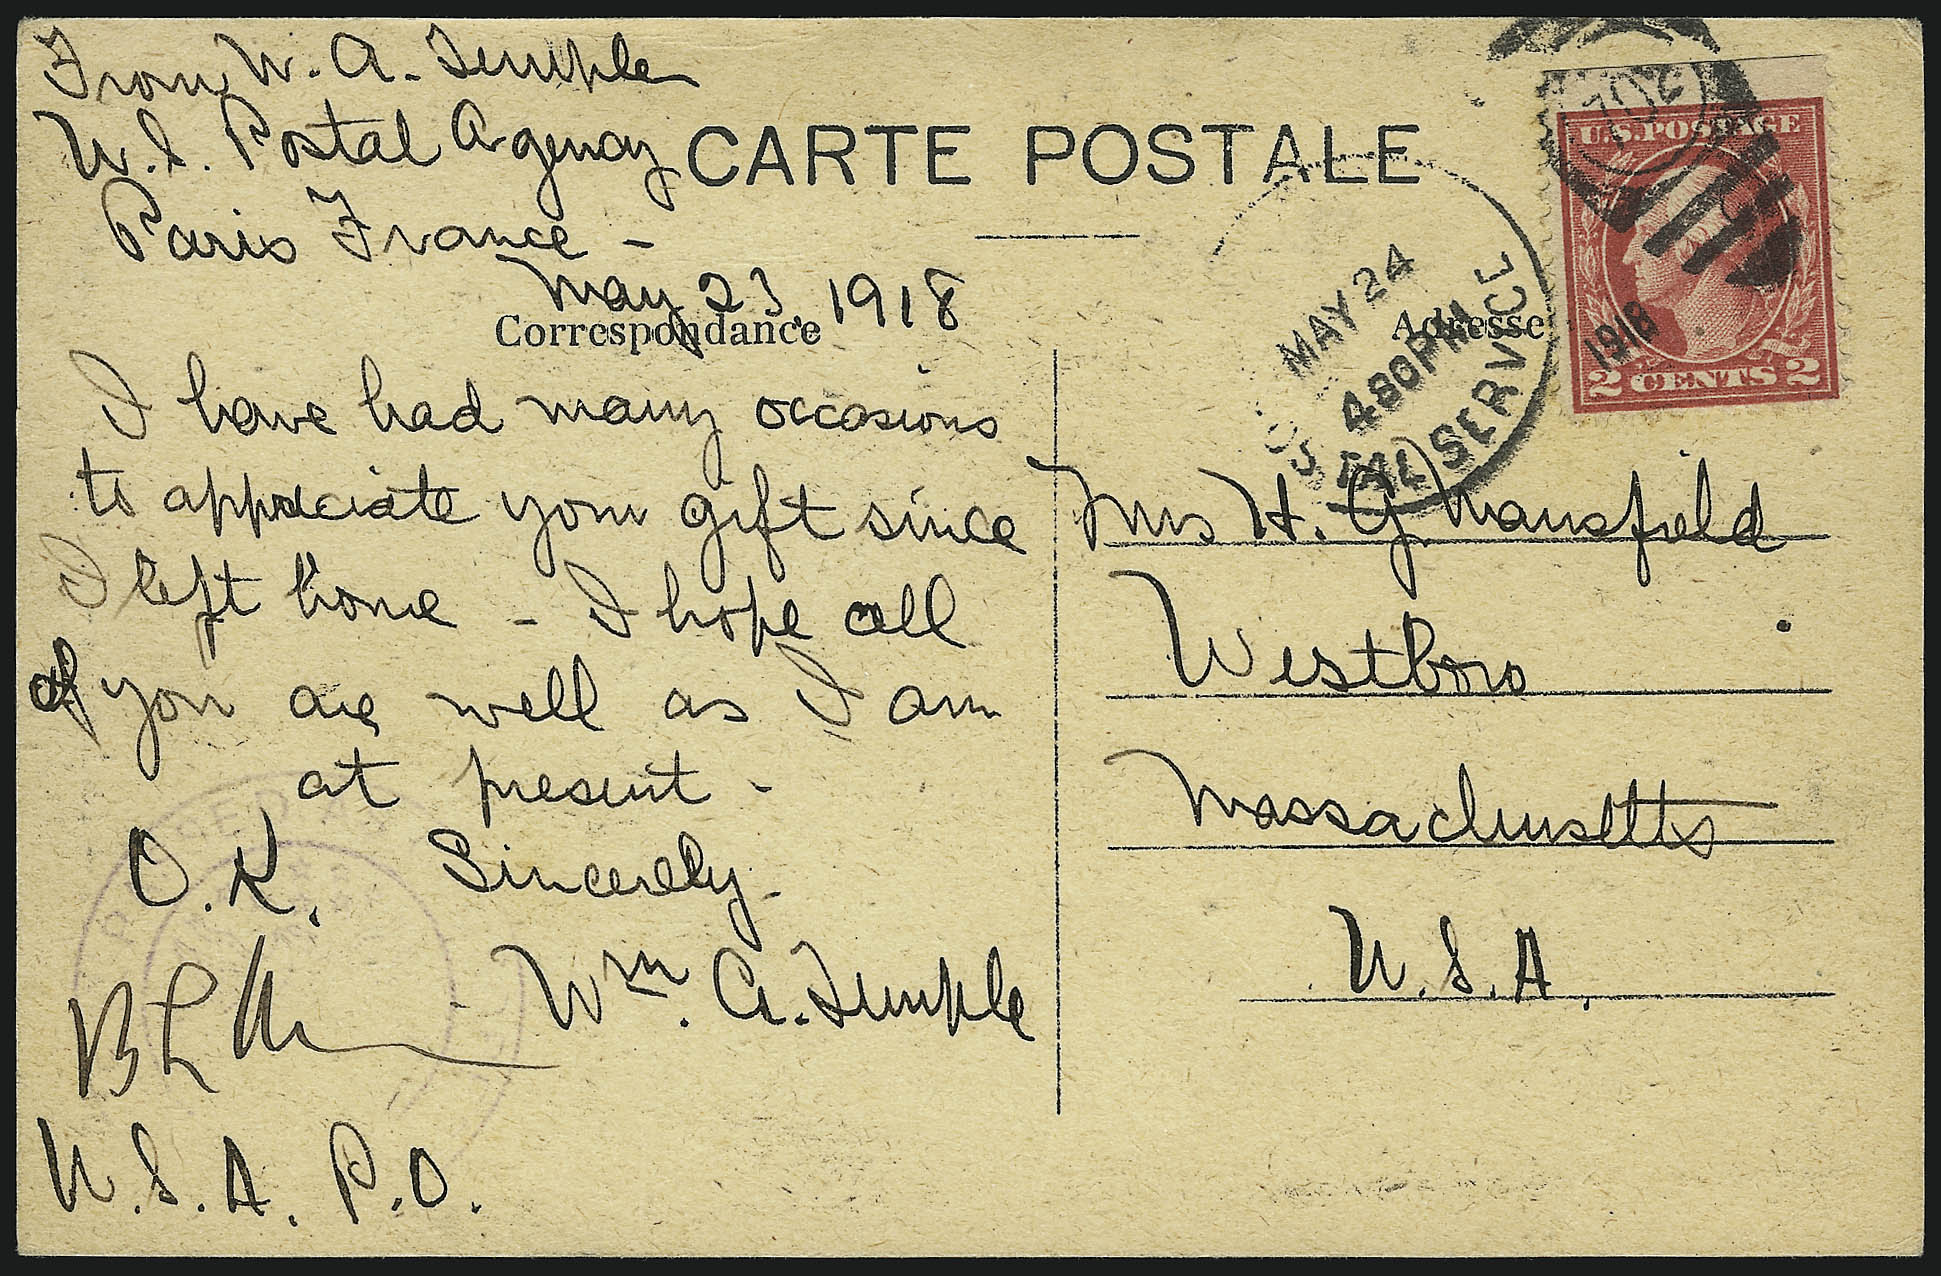 From W. A. Temple
U.S. Postal Agency
Paris France -
May 23, 1918
CARTE POSTALE
Correspondance
Adresse
I have had many occasions
to appreciate your gift since
I left home - I hope all
of you are well as I am
at present -
Sincerely -
Wm. A. Temple
O.K.
U.S.A. P.O.
U.S. POSTAGE
2 CENTS 2
702
1918
MAY 24
4 30 PM
SERVICE
Mrs H. G. Mansfield
Westboro
Massachusetts
U.S.A.